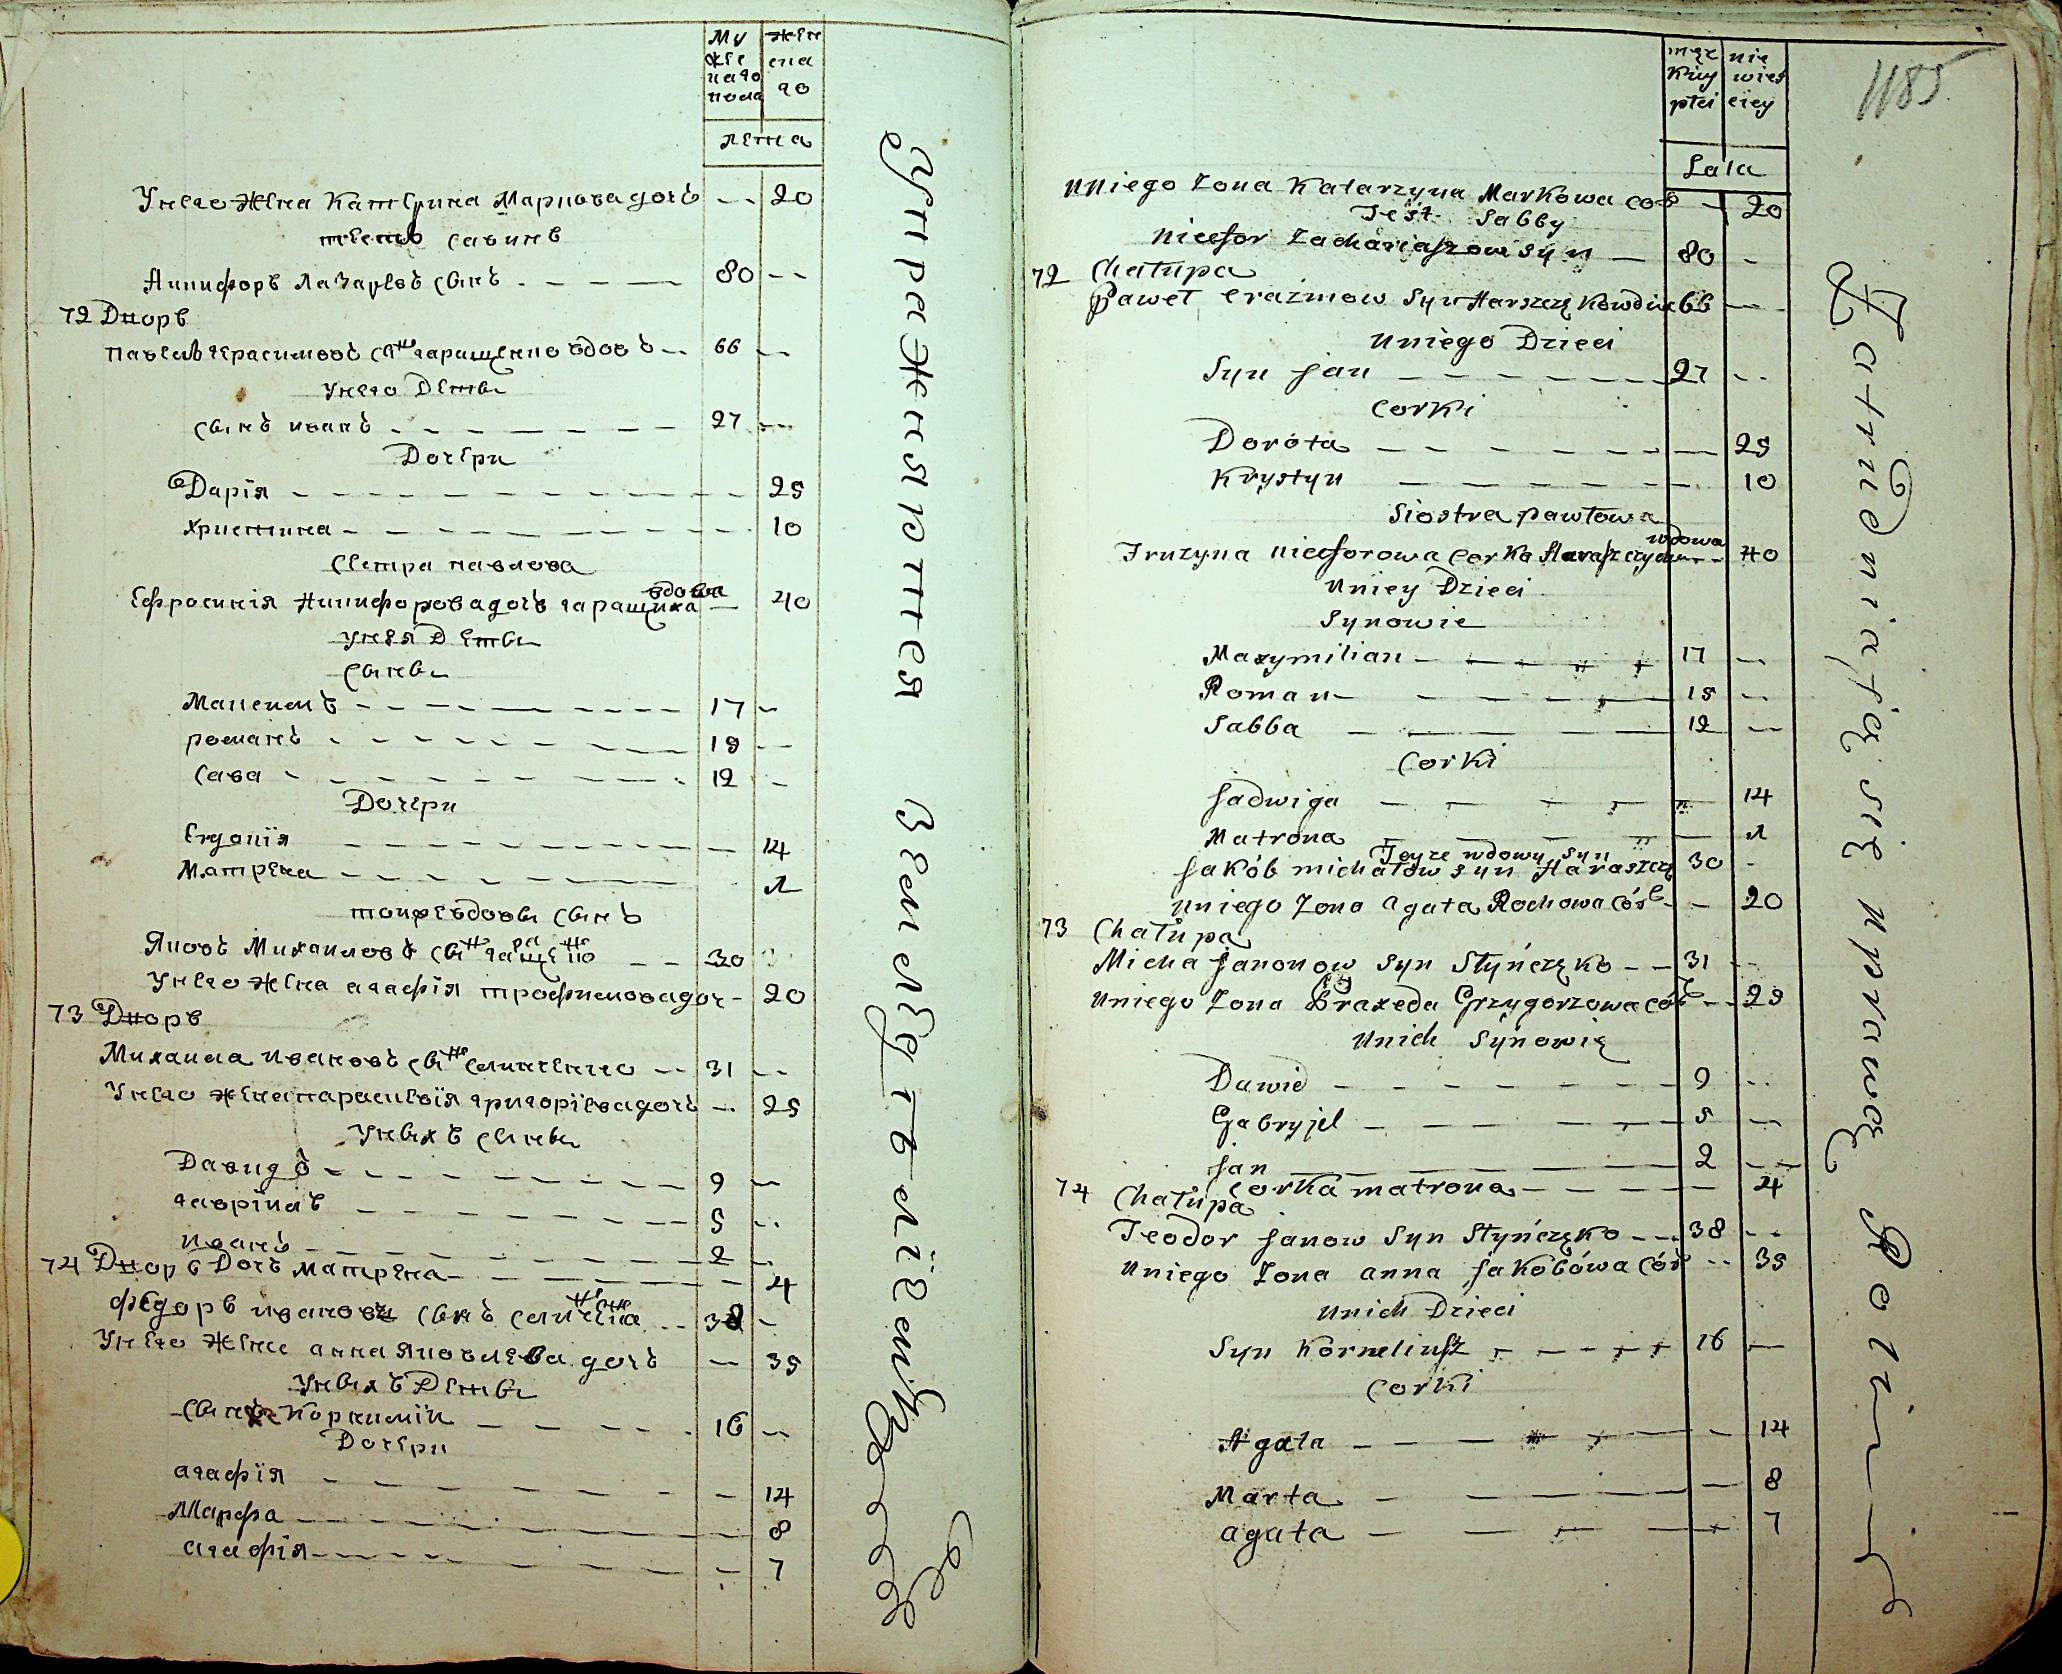 Му же наго пола
жен ена го
лета
У него жена Катерина Маркова дочь -- 20
тесть савинъ
Никифоръ Лазаревъ сынъ 80 --
72 Дворъ
Павелъ Герасимовъ сынъ гаращенко вдовъ -- 66 --
У него Дети
сынъ иванъ 27 --
Дочери
Дарїя 25
христина 10
Сестра павлова
Ефросинїя Никифорова дочь гаращиха вдова 40
У нея Дети
Сыны
Максимъ 17 --
романъ 15 --
Сава 12 -
Дочери
Евдокїя 14
Матрена 1
тоиже вдовы сынъ
Яковъ Михаиловъ сынъ гаращенко -- 30
У него жена агафїя трофимова доч - 20
73 Дворъ
Михаила ивановъ сынъ селинченко -- 31 --
У него жена параскевїя григорїева дочь -- 25
У ныхъ сыны
Давидъ 9 --
гаврїилъ 5 --
иванъ 2 --
74 Дворъ Дочъ матрена 4
Федоръ ивановъ сынъ селинченка -- 38 -
У него жена анна яковлева дочь -- 35
У ныхъ Дети
Сынъ Корнилїи 16 --
Дочери
агафїя 14
Марфа 8
агафїя 7
упражняются земледѣлїемъ
1185
męz kiiy płci
nie wies ciey
Lata
U niego Zona Katarzyna Markowa cor - 20
Test Sabby
Nicefor Zachariaszow syn - 80 -
72 Chałupa
Paweł Erazmow Syn Harszczękowdw 66 --
U niego Dzieci
Syn Jan 27 --
Corki
Dorota 25
Krystyn 10
Siostra pawłowa
Fruzyna niceforowa Corka wdowa 40
U niey Dzieci
Synowie
Maxymilian 17 --
Roman 15 --
Sabba 12 --
Corki
Jadwiga 14
Matrona 1
Teyze wdowy syn
Jakób michałow syn Haraszczę 30 -
U niego Zona Agata Rochowa cór - 20
73 Chałupa
Micha Janonow Syn Słyńczęko -- 31 --
U niego Zona Praxeda Grzygorzowa cór -- 25
U nich Synowie
Dawid 9 --
Gabryjel 5 --
Jan 2 --
Corka matrona 4
74 Chałupa
Teodor Janow Syn Słyńczęko -- 38 --
U niego Zona anna Jakobówa Cór -- 35
U nich Dzieci
Syn Korneliusz 16 --
Corki
Agata 14
Marta 8
agata 7
Zatrudniają się uprawą Roli